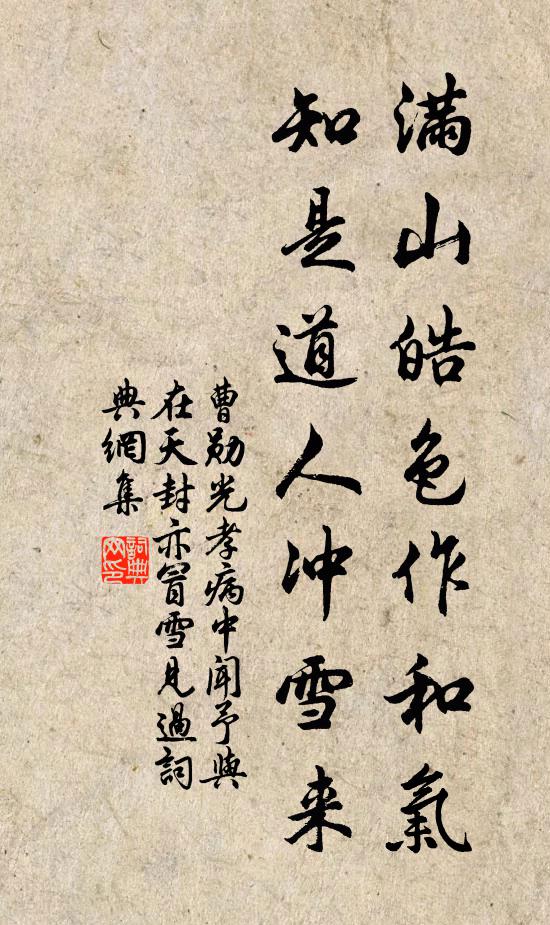 满山皓色作和氣
知是道人冲雪来
曹勛光孝病中聞予與
在天封亦冒雪見過詞
典網集
詞典
网印